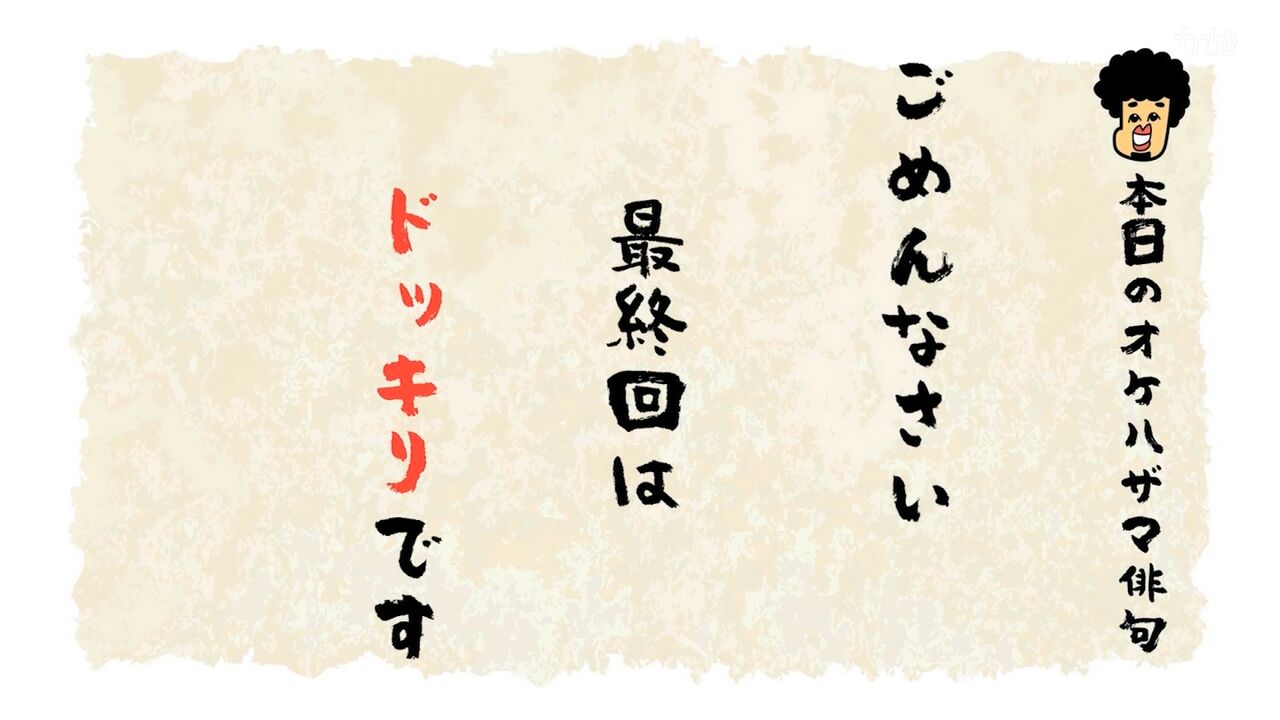 本日のオケハザマ俳句
ごめんなさい
最終回は
ドッキリです
+rkb